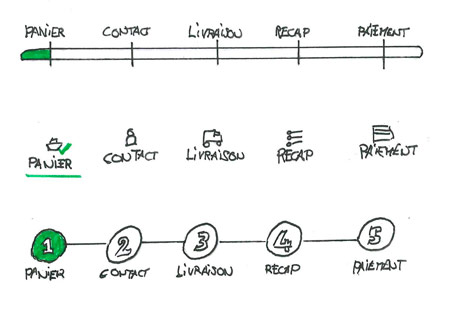 PANIER CONTACT LIVRAISON RECAP PAIEMENT
PANIER CONTACT LIVRAISON RECAP PAIEMENT
1 2 3 4 5
PANIER CONTACT LIVRAISON RECAP PAIEMENT